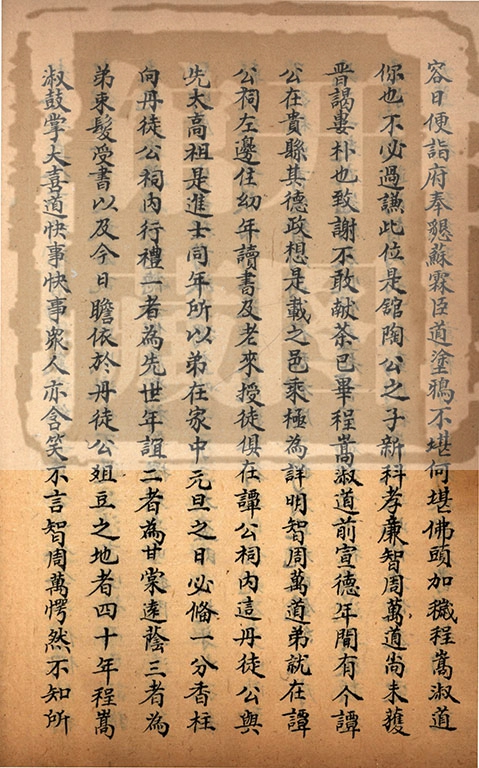 容日便詣府奉懇蘇霖臣道塗鴉不堪何堪佛頭加穢程嵩淑道
你也不必過謙此位是舘陶公之子新科孝廉智周萬道尚未獲
晋謁婁朴也致謝不敢献茶已畢程嵩淑道前宣德年間有个譚
公在貴縣其德政想是載之邑乘極為詳明智周萬道弟就在譚
公祠左邊住幼年讀書及老來授徒俱在譚公祠内這丹徒公與
先太高祖是進士同年所以弟在家中元旦之日必偹一分香柱
向丹徒公祠内行禮一者為先世年誼二者為甘棠遠蔭三者為
弟束髮受書以及今日瞻依於丹徒公俎豆之地者四十年程嵩
淑鼓掌大喜道快事快事衆人亦含笑不言智周萬愕然不知所